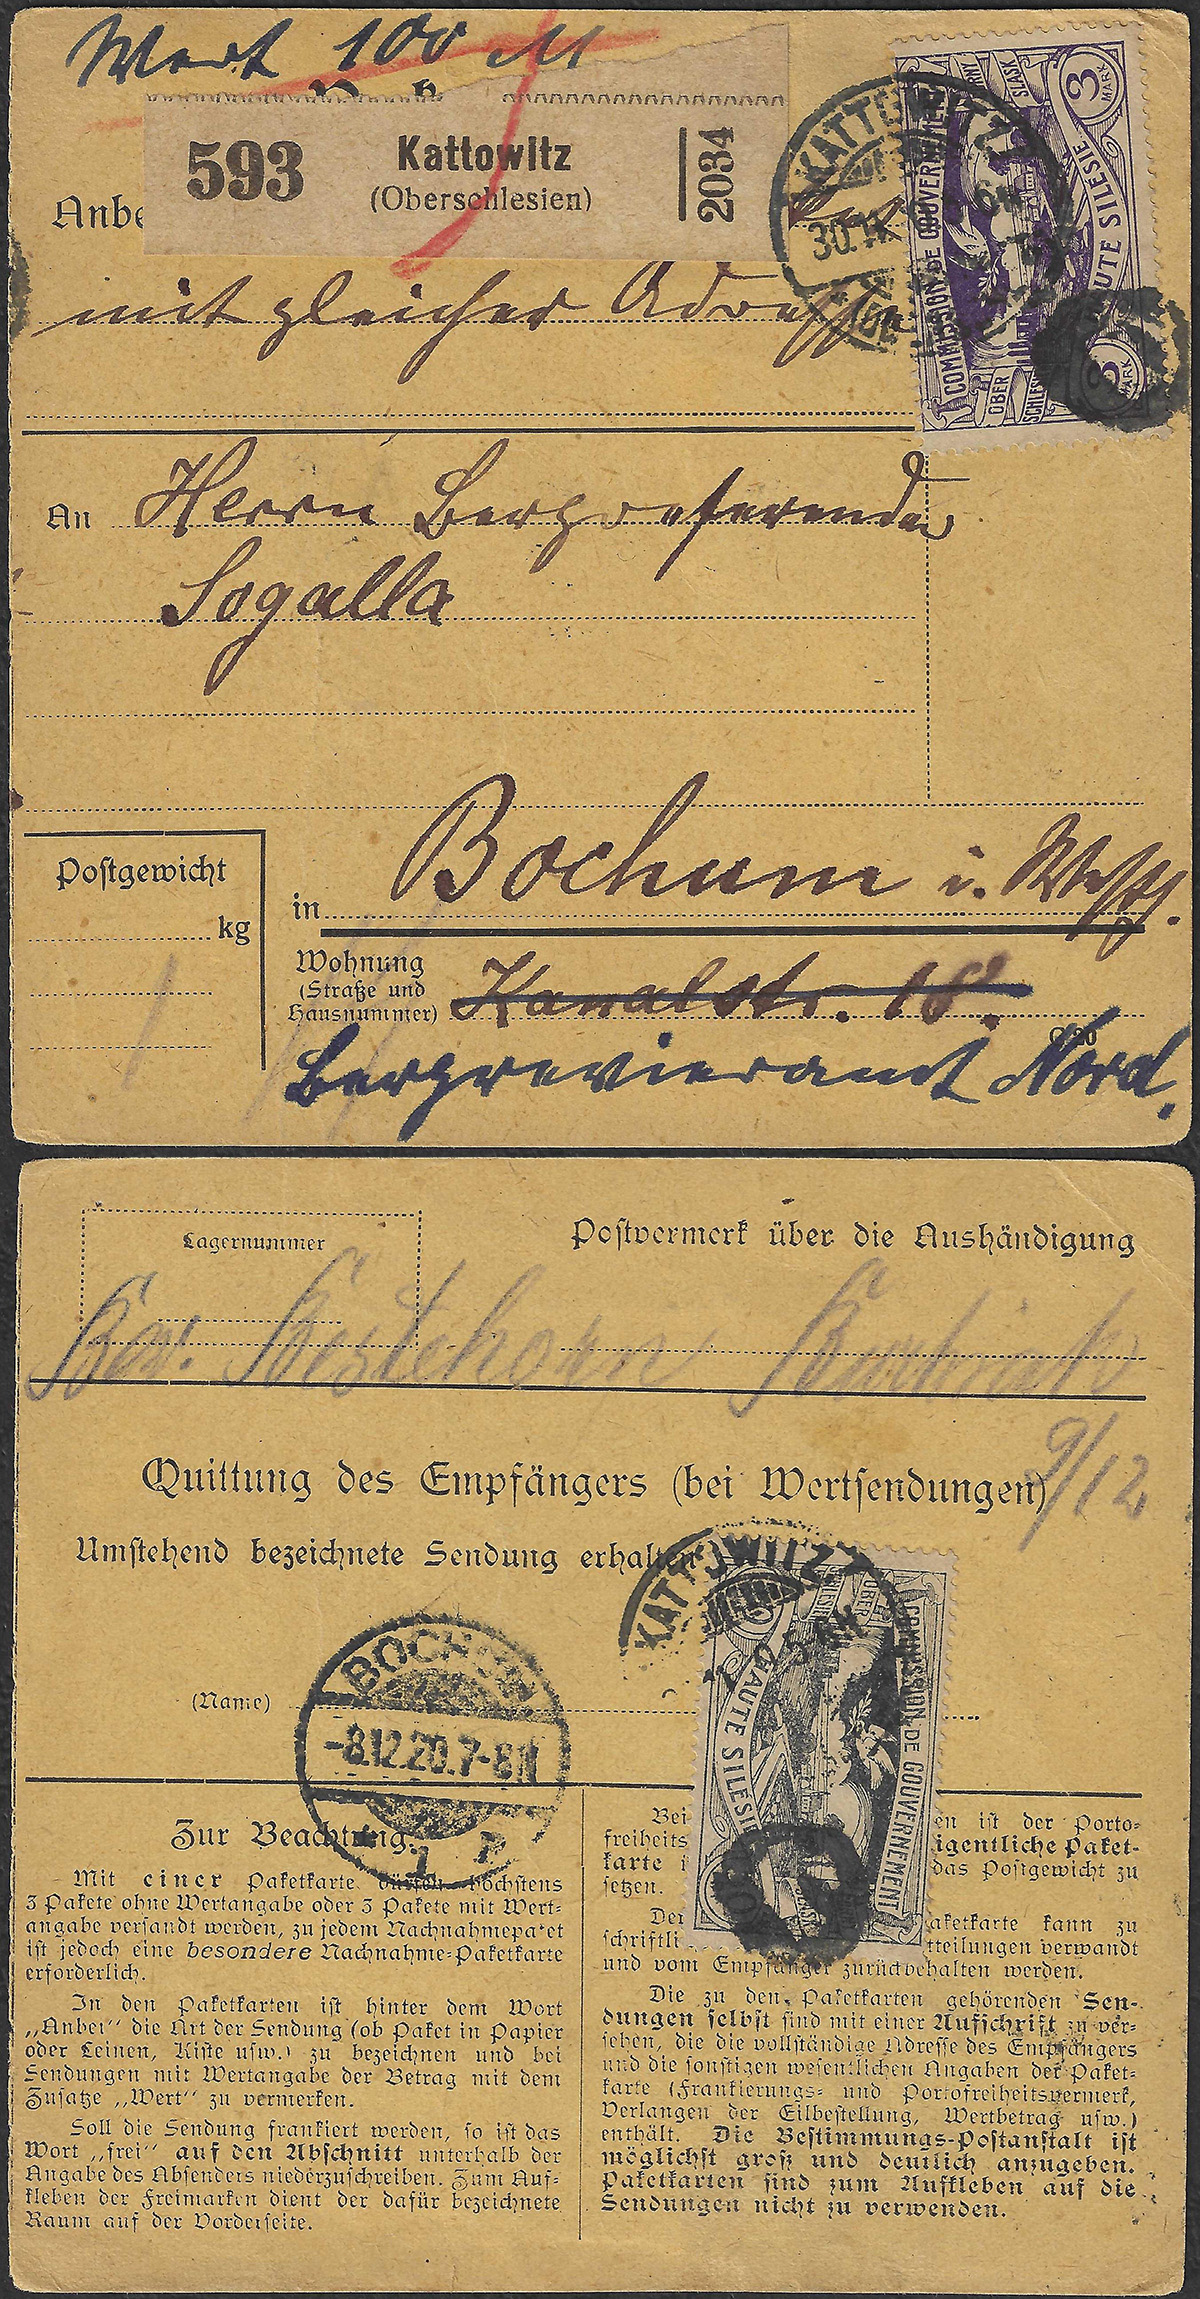 Wert 100 M
593 Kattowitz
(Oberschlesien)
2034
Anbe
mit gleicher Adresse
KATTOWITZ
30.11
COMMISSION DE GOUVERNEMENT
HAUTE SILESIE
OBER
SCHLESIEN
GORNY
SLASK
3 MARK
3 MARK
An Herrn Bergreferendar
Sogalla
Postgewicht
kg
in Bochum i. Westf.
Wohnung
(Straße und
Hausnummer)
Kanalstr. 18.
C 20
Bergrevieramt Nord.
Lagernummer
Postvermerk über die Aushändigung
Bestehorn
9/12
Quittung des Empfängers (bei Wertsendungen)
Umstehend bezeichnete Sendung erhalten
KATTOWITZ
BOCHUM
-8.12.20.7-8N
1
(Name)
COMMISSION DE GOUVERNEMENT
HAUTE SILESIE
OBER
Zur Beachtung.
Mit einer Paketkarte dürfen höchstens
3 Pakete ohne Wertangabe oder 3 Pakete mit Wert-
angabe versandt werden, zu jedem Nachnahmepaket
ist jedoch eine besondere Nachnahme-Paketkarte
erforderlich.
In den Paketkarten ist hinter dem Wort
„Anbei“ die Art der Sendung (ob Paket in Papier
oder Leinen, Kiste usw.) zu bezeichnen und bei
Sendungen mit Wertangabe der Betrag mit dem
Zusatze „Wert“ zu vermerken.
Soll die Sendung frankiert werden, so ist das
Wort „frei“ auf den Abschnitt unterhalb der
Angabe des Absenders niederzuschreiben. Zum Auf-
kleben der Freimarken dient der dafür bezeichnete
Raum auf der Vorderseite.
Bei en ist der Porto-
freiheits igentliche Paket-
karte das Postgewicht zu
setzen.
Der aketkarte kann zu
schriftli tteilungen verwandt
und vom Empfänger zurückbehalten werden.
Die zu den Paketkarten gehörenden Sen-
dungen selbst sind mit einer Aufschrift zu ver-
sehen, die die vollständige Adresse des Empfängers
und die sonstigen wesentlichen Angaben der Paket-
karte (Frankierungs- und Portofreiheitsvermerk,
Verlangen der Eilbestellung, Wertbetrag usw.)
enthält. Die Bestimmungs-Postanstalt ist
möglichst groß und deutlich anzugeben.
Paketkarten sind zum Aufkleben auf die
Sendungen nicht zu verwenden.